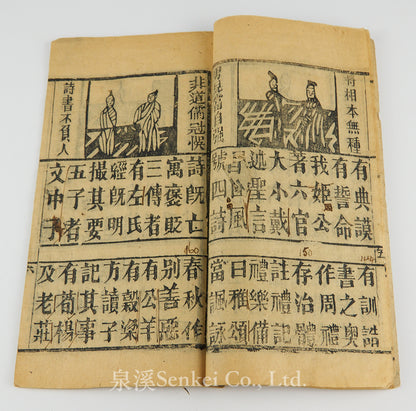 將相本無種
男兒當自強
有典謨 有訓誥
有誓命 書之奧
我姬公 作周禮
著六官 存治體
大小戴 註禮記
述聖言 禮樂備
曰國風 曰雅頌
號四詩 當諷詠
五
非道儒冠悮
詩書不負人
詩既亡 春秋作
寓褒貶 別善惡
三傳者 有公羊
有左氏 有穀梁
經既明 方讀子
撮其要 記其事
五子者 有荀楊
文中子 及老莊
六
150
160
泉溪Senkei Co., Ltd.